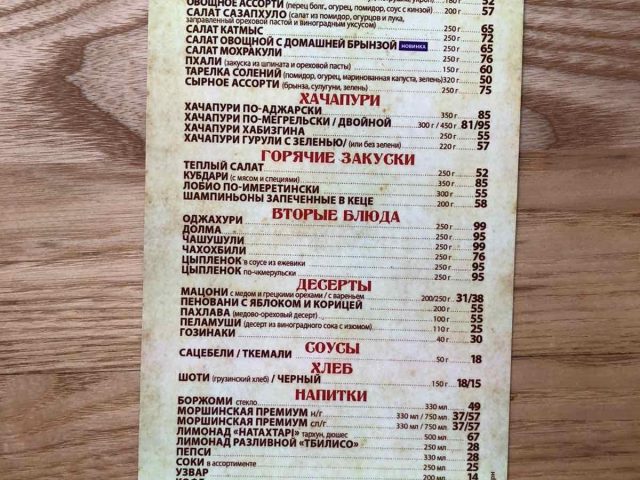 ОВОЩНОЕ АССОРТИ (перец болг., огурец, помидор, соус с кинзой) 200 г 52
САЛАТ САЗАПХУЛО (салат из помидор, огурцов и лука, 57
заправленный ореховой пастой и виноградным уксусом)
САЛАТ КАТМЫС 250 г 65
САЛАТ ОВОЩНОЙ С ДОМАШНЕЙ БРЫНЗОЙ НОВИНКА 250 г 72
САЛАТ МОХРАКУЛИ 250 г 65
ПХАЛИ (закуска из шпината и ореховой пасты) 250 г 76
ТАРЕЛКА СОЛЕНИЙ (помидор, огурец, маринованная капуста, зелень) 320 г 60
СЫРНОЕ АССОРТИ (брынза, сулугуни, зелень) 50
75
ХАЧАПУРИ
ХАЧАПУРИ ПО-АДЖАРСКИ 350 г 85
ХАЧАПУРИ ПО-МЕГРЕЛЬСКИ / ДВОЙНОЙ 300 г / 450 г 81/95
ХАЧАПУРИ ХАБИЗГИНА 250 г 55
ХАЧАПУРИ ГУРУЛИ С ЗЕЛЕНЬЮ/ (или без зелени) 220 г 57
ГОРЯЧИЕ ЗАКУСКИ
ТЕПЛЫЙ САЛАТ 250 г 52
КУБДАРИ (с мясом и специями) 350 г 85
ЛОБИО ПО-ИМЕРЕТИНСКИ 300 г 55
ШАМПИНЬОНЫ ЗАПЕЧЕННЫЕ В КЕЦЕ 200 г 58
ВТОРЫЕ БЛЮДА
ОДЖАХУРИ 250 г 99
ДОЛМА 250 г 95
ЧАШУШУЛИ 250 г 99
ЧАХОХБИЛИ 250 г 76
ЦЫПЛЕНОК в соусе из ежевики 250 г 95
ЦЫПЛЕНОК по-чкмерульски 250 г 95
ДЕСЕРТЫ
МАЦОНИ с медом и грецкими орехами / с вареньем 200/250 г 31/38
ПЕНОВАНИ С ЯБЛОКОМ И КОРИЦЕЙ 200 г 55
ПАХЛАВА (медово-ореховый десерт) 100 г 55
ПЕЛАМУШИ (десерт из виноградного сока с изюмом) 110 г 25
ГОЗИНАКИ 40 г 30
СОУСЫ
САЦЕБЕЛИ / ТКЕМАЛИ 50 г 18
ХЛЕБ
ШОТИ (грузинский хлеб) / ЧЕРНЫЙ 150 г 18/15
НАПИТКИ
БОРЖОМИ стекло 330 мл 49
МОРШИНСКАЯ ПРЕМИУМ н/г 330 мл / 750 мл 37/57
МОРШИНСКАЯ ПРЕМИУМ сл/г 330 мл / 750 мл 37/57
ЛИМОНАД «НАТАХТАРІ» тархун, дюшес 500 мл 67
ЛИМОНАД РАЗЛИВНОЙ «ТБИЛИСО» 250 мл 28
ПЕПСИ 330 мл 28
СОКИ в ассортименте 250 мл 25
УЗВАР 200 мл 14
КОФЕ